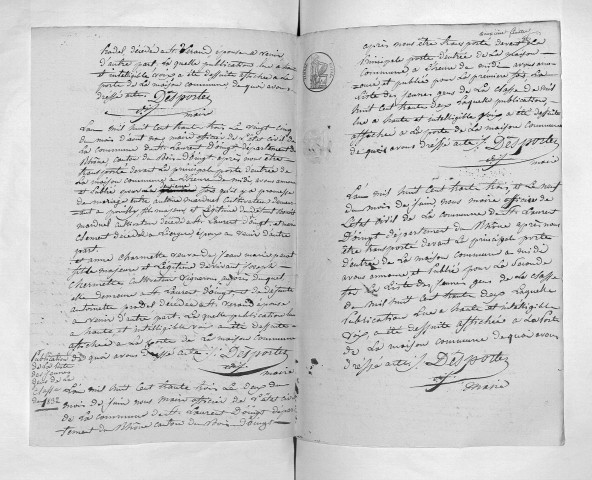 pradel décédée à St Verand épouse à venir
d'autre part. la quelle publication lue à haute
et intelligible voix a été dessuite affichée à la
porte de la maison commune de quoi avons
dressé acte. J. Desportes
maire
L'an mil huit cent trente trois le vingt cinq
du mois d'avril nous maire officier de l'état civil de
la commune de St Laurent d'oingt département du
Rhône canton du Bois d'oingt après nous être
transporté devant la principale porte d'entrée de
la maison commune à l'heure de midi avons annoncé
et publié pour la seconde fois qu'il y a promesse
de mariage entre antoine marduel cultivateur demeurant
à fils majeur et légitime de Benoit
marduel cultivateur décédé à St Laurent d'oingt, et
Clement décédée à époux à venir d'une
part.
et anne chermette veuve de Jean marie
fille majeure et légitime de Joseph
chermette cultivateur vigneron auprès duquel
elle demeure à St Laurent d'oingt et de défunte
antoinette pradel décédée à St Verand épouse
à venir d'autre part. la quelle publication lue
à haute et intelligible voix a été dessuite
affichée à la porte de la maison commune
de quoi avons dressé acte J. Desportes
maire
Publication
de la liste
des jeunes
gens de la
classe
de 1832
L'an mil huit cent trente trois le deux du
mois de Juin nous maire officier de l'état civil
de la commune de St Laurent d'oingt dépar-
tement du Rhône canton du Bois d'oingt
après nous être transporté devant la
principale porte d'entrée de la maison
commune à l'heure de midi avons annoncé
et publié pour la première fois la
liste des jeunes gens de la classe de mil
huit cent trente deux laquelle publication
lue à haute et intelligible voix a été dessuite
affichée à la porte de la maison commune
de quoi avons dressé acte J. Desportes
maire
L'an mil huit cent trente trois et le neuf
du mois de Juin nous maire officier de
l'état civil de la commune de St Laurent
d'oingt département du Rhône après nous
être transporté devant la principale porte
d'entrée de la maison commune à midi
avons annoncé et publié pour la seconde
fois la liste des jeunes gens de la classe
de mil huit cent trente deux laquelle
publication lue à haute et intelligible
voix a été dessuite affichée à la porte
de la maison commune de quoi avons
dressé acte J. Desportes
maire